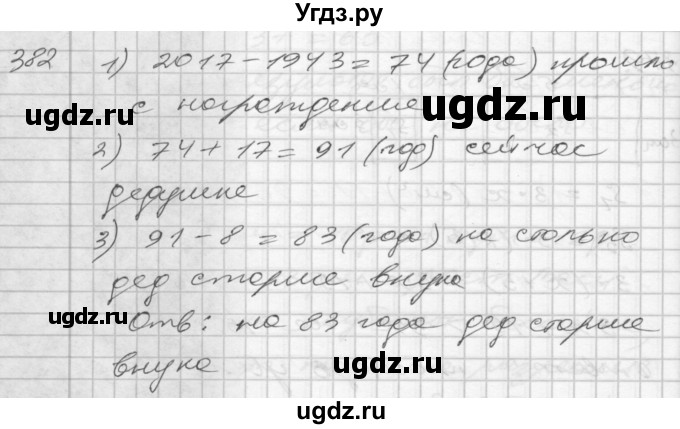 Угдз.ру
382 1) 2017 - 1943 = 74 (года) прошло
с награждение
ugdz.ru
ugdz.ru
2) 74 + 17 = 91 (год) сейчас
дедушке
3) 91 - 8 = 83 (года) на столько
дед старше внука
ugdz.ru
Отв: на 83 года дед старше
внука
ugdz.ru
ugdz.ru